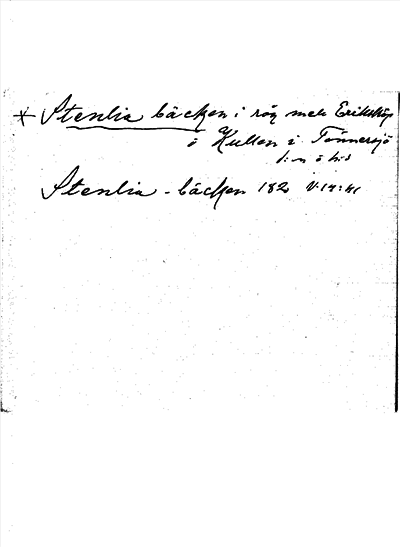 Stenlia bäcken i rög mels Eriksköp
o Kullen i Tönnersjö
h:n o h:d
Stenlia - bäcken 182 V:14:41